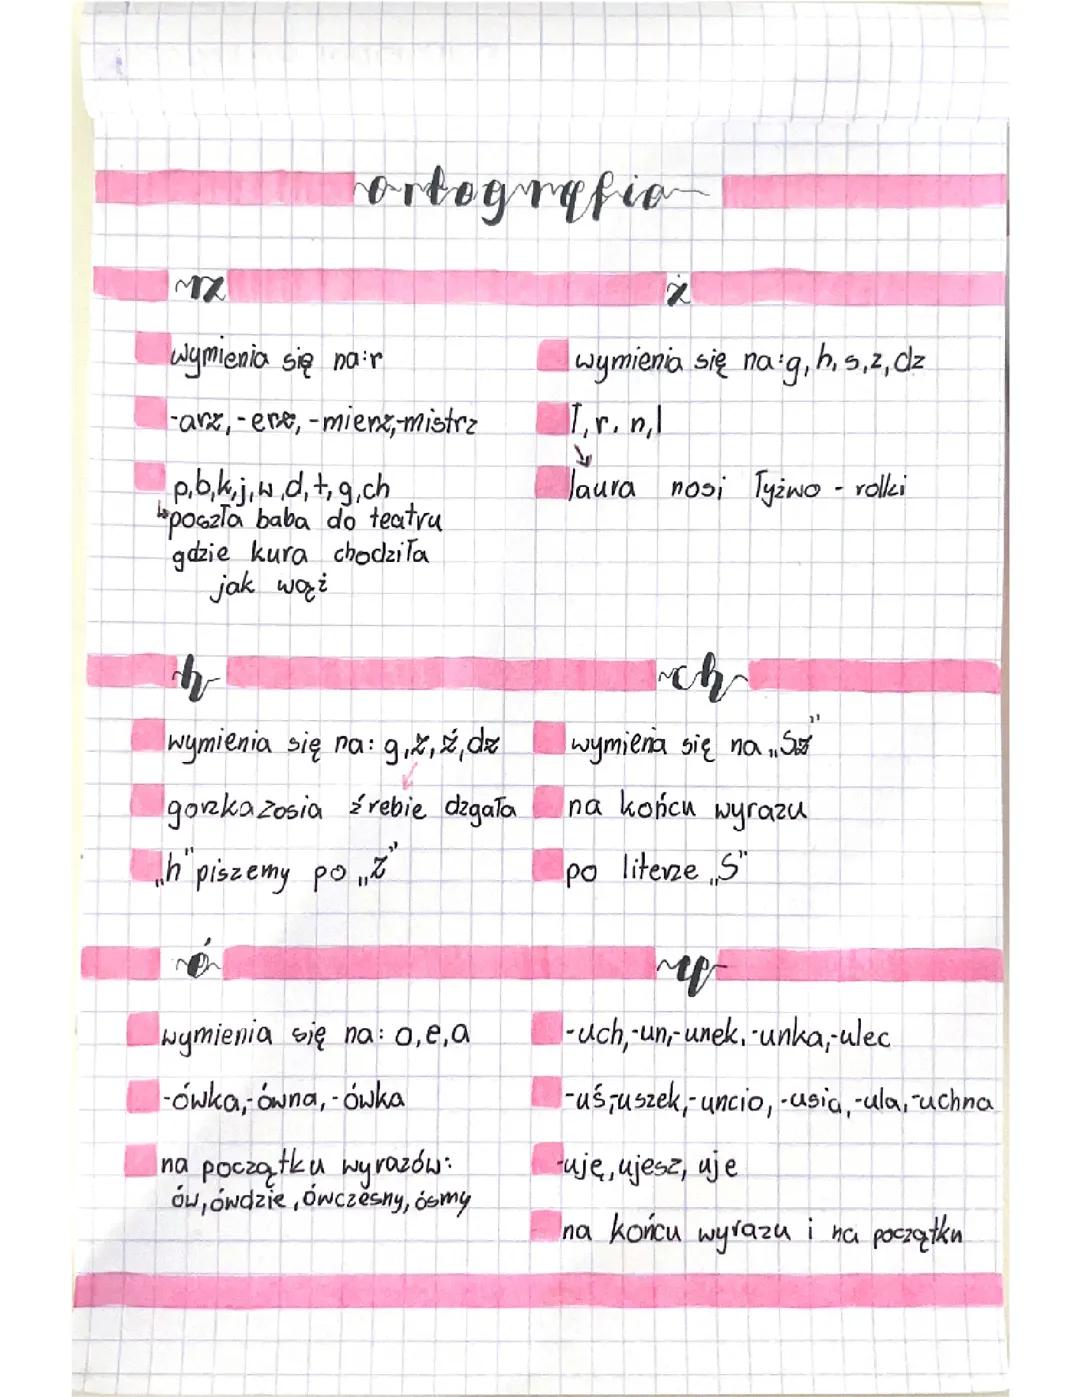 ortografia
rz
wymienia się na:r
-arz, -erz, -mierz,-mistrz
p,b,k,j,w,d,t,g,ch
↳poszła baba do teatru
gdzie kura chodziła
jak wąż
ż
wymienia się na:g, h, s, z, dz
ł, r, n, l
laura nosi łyżwo - rolki
h
wymienia się na: g, ż, ź, dz
gorzka zosia źrebie dzgała
„h" piszemy po „z"
ch
wymienia się na „sz"
na końcu wyrazu
po literze „s"
ó
wymienia się na: o,e,a
-ówka,-ówna, -ówka
na początku wyrazów:
ów, ówdzie, ówczesny, ósmy
u
-uch,-un,-unek, -unka,-ulec
-uś,-uszek,-uncio, -usia,-ula,-uchna
-uję, ujesz, uje
na końcu wyrazu i na początku